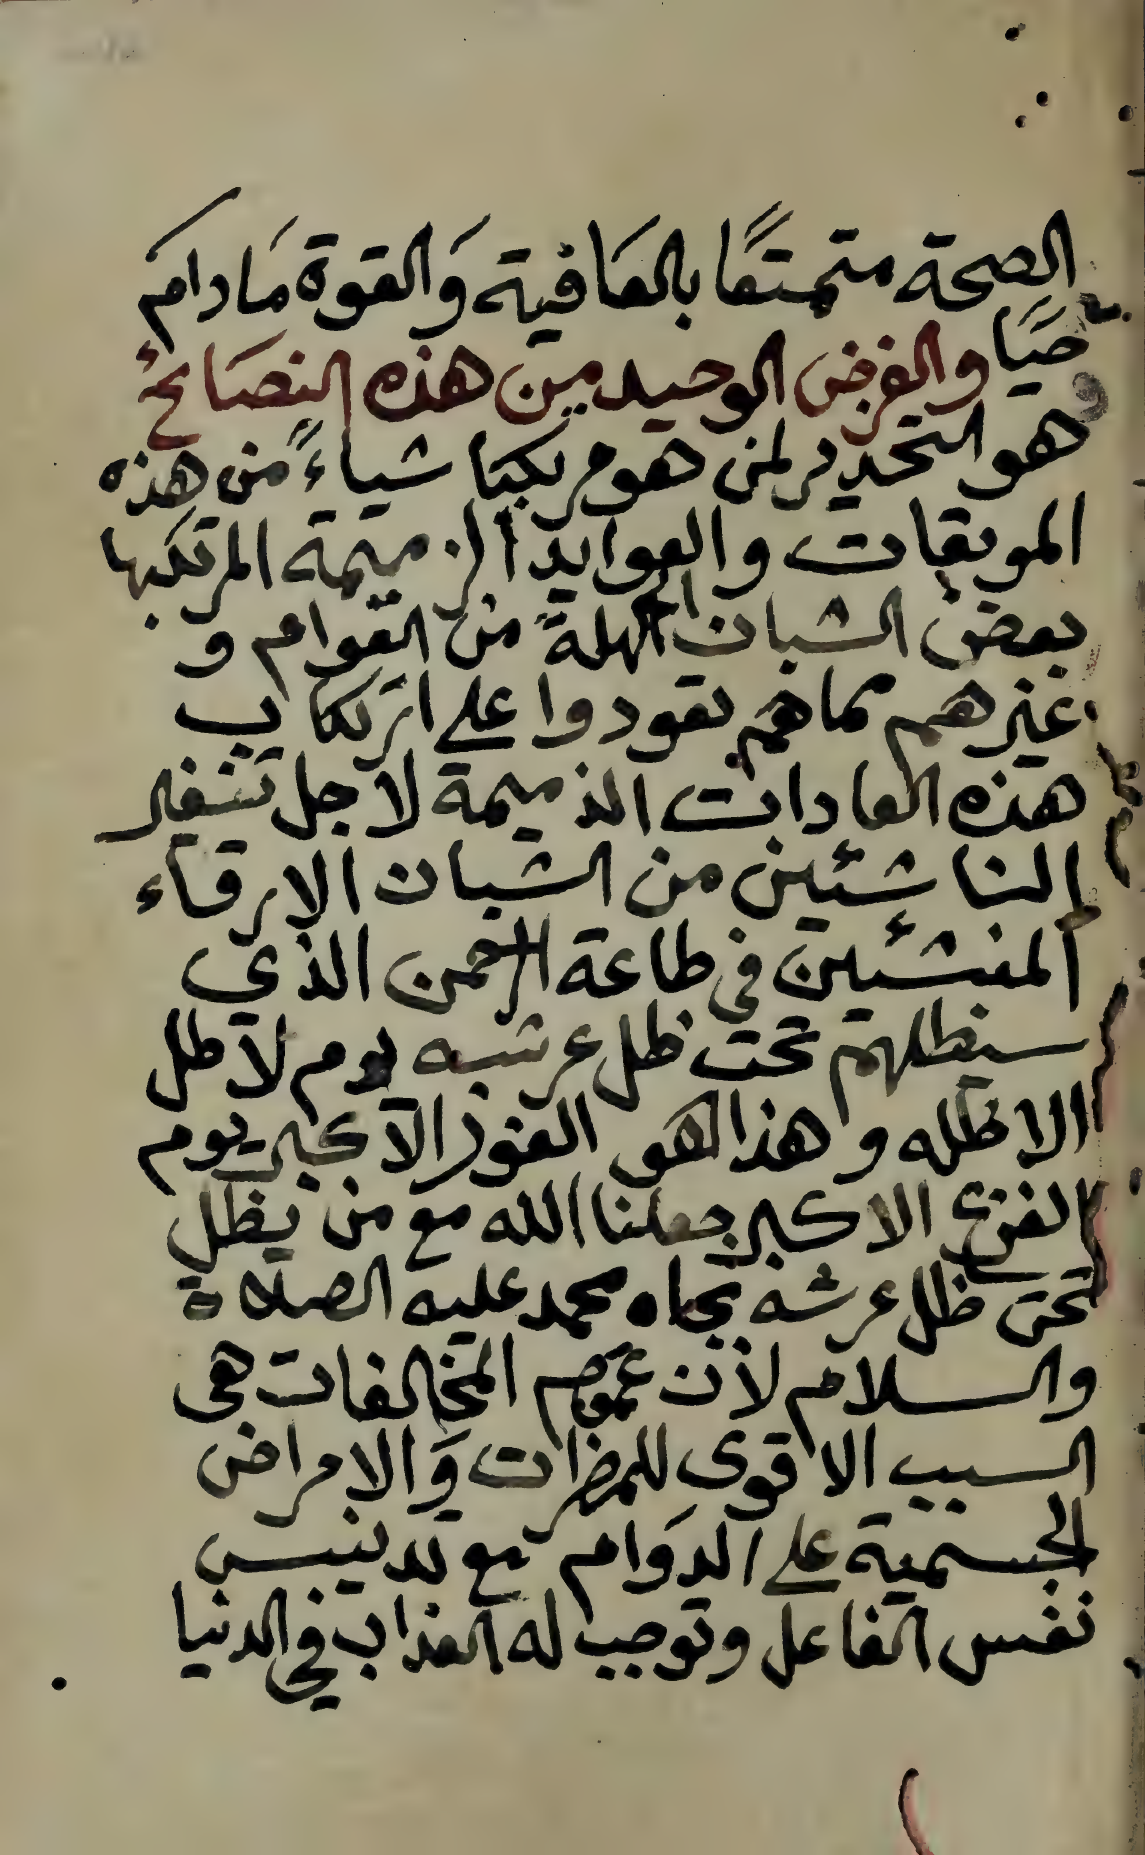 الصحة متمتعًا بالعَافية وَالقوة مَا دام
حيًا والغرض الوحيد من هذه النصَائح
هو التحدير لمن هو مرتكبا شياءً من هذه
الموبقات والعوايد الزميمة المرتكبها
بعض الشبان الجهلة من القوام و
غيرهم مما هم تعودوا على ارتكاب
هذه العادات الذميمة لاجل تنفير
الناشئين من الشبان الارقاء
المنشئين في طاعة الرحمن الذي
سيظلهم تحت ظل عرشه يوم لا ظل
الا ظله وهذا لهو الفوز الاكبر يوم
الفزع الاكبر جعلنا الله مع من يظل
تحت ظل عرشه بجاه محمد عليه الصلاة
والسلام لأن عموم المخالفات هى
السبب الاقوى للمضرات وَالامراض
الجسمية على الدوَام مع تدنيس
نفس الفاعل وتوجب له العذاب في الدنيا